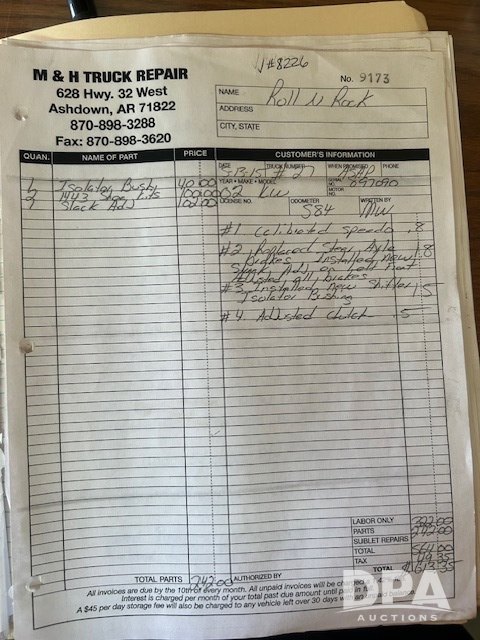 W#8226
M & H TRUCK REPAIR
628 Hwy. 32 West
Ashdown, AR 71822
870-898-3288
Fax: 870-898-3620
No. 9173
NAME Roll N Rock
ADDRESS
CITY, STATE
QUAN. NAME OF PART PRICE
CUSTOMER'S INFORMATION
DATE TRUCK NUMBER WHEN PROMISED PHONE
5-13-15 #27 ASAP
YEAR • MAKE • MODEL SERIAL NO. 097090
02 KW MOTOR NO.
LICENSE NO. ODOMETER WRITTEN BY
584 MW
1 Isolator Bush 40.00
2 1443 Shoe Kits 100.00
2 Slack Adj 102.00
#1 Calibrated speedo .8
#2 Replaced Steer Axle 1.8
Brakes Installed New
Slack Adj on Left Front
Adjusted all brakes
#3 Installed New Shifter 1.5
Isolator Bushing
#4. Adjusted Clutch .5
LABOR ONLY 322.00
PARTS 242.00
SUBLET REPAIRS
TOTAL 564.00
TAX 49.35
TOTAL $613.35
TOTAL PARTS 242.00
AUTHORIZED BY
All invoices are due by the 10th of every month. All unpaid invoices will be charged
Interest is charged per month of your total past due amount until paid in full.
A $45 per day storage fee will also be charged to any vehicle left over 30 days with an unpaid balance.
DPA
AUCTIONS